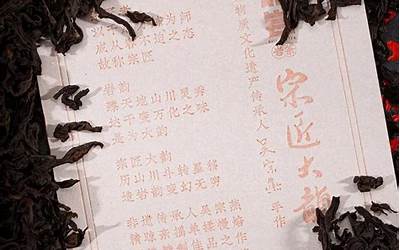 宗匠大韵
物质文化遗产传承人吴宗燕手作
为师
之态
故称宗匠
岩韵
臻天地山川灵秀
变万化之味
是为大韵
宗匠大韵
历山川斗转星移
造岩韵变幻无穷
非遗传承人吴宗燕
慢焙
佳品之作